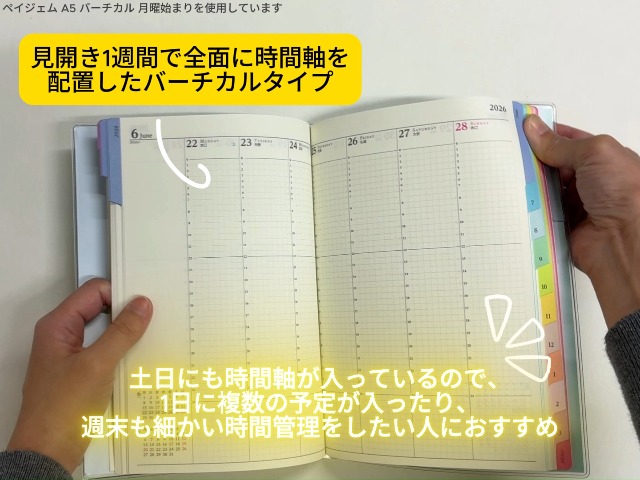 ペイジェム A5 バーチカル 月曜始まりを使用しています
見開き1週間で全面に時間軸を
配置したバーチカルタイプ
2026
6 June
22 MONDAY
23 TUESDAY
24
25
26 FRIDAY
27 SATURDAY
28 SUNDAY
7
8
9
10
11
12
1
2
3
土日にも時間軸が入っているので、
1日に複数の予定が入ったり、
週末も細かい時間管理をしたい人におすすめ